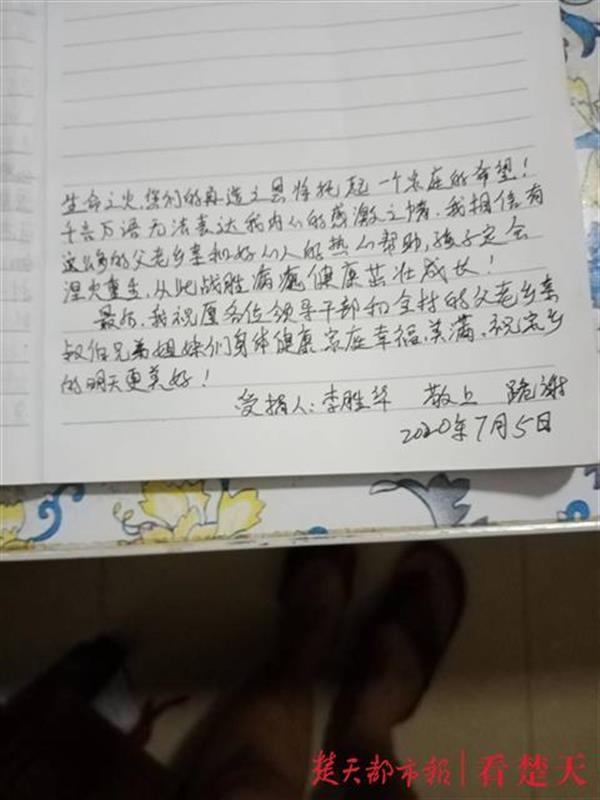 生命之火,您们的再造之恩将托起一个家庭的希望!
千言万语无法表达我内心的感激之情,我相信有
这么多的父老乡亲和好心人的热心帮助,孩子定会
涅火重生,从此战胜病魔健康茁壮成长!
最后,我祝愿各位领导干部和全村的父老乡亲
叔伯兄弟姐妹们身体健康,家庭幸福,美满,祝家乡
的明天更美好!
受捐人:李胜华 敬上 跪谢
2020年7月5日
楚天都市报|看楚天